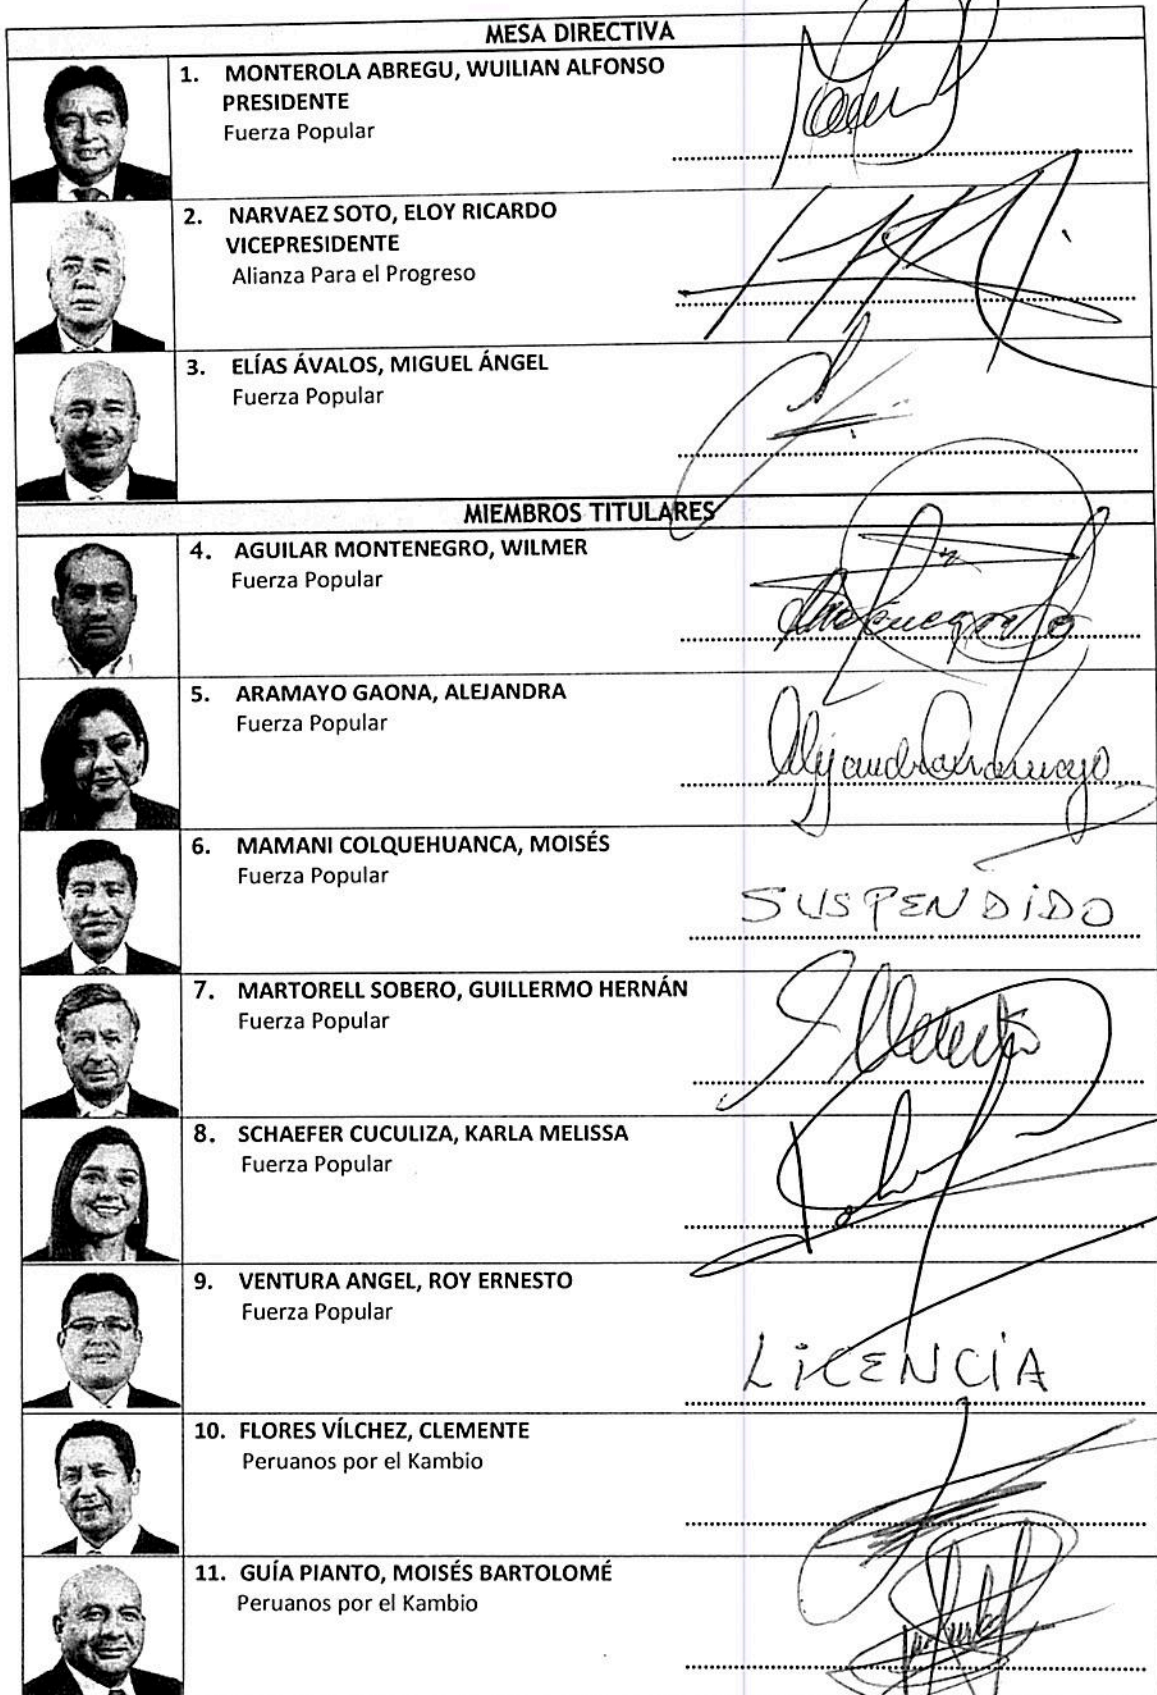 MESA DIRECTIVA
1. MONTEROLA ABREGU, WUILIAN ALFONSO
PRESIDENTE
Fuerza Popular
2. NARVAEZ SOTO, ELOY RICARDO
VICEPRESIDENTE
Alianza Para el Progreso
3. ELÍAS ÁVALOS, MIGUEL ÁNGEL
Fuerza Popular
MIEMBROS TITULARES
4. AGUILAR MONTENEGRO, WILMER
Fuerza Popular
5. ARAMAYO GAONA, ALEJANDRA
Fuerza Popular
Alejandra Aramayo
6. MAMANI COLQUEHUANCA, MOISÉS
Fuerza Popular
SUSPENDIDO
7. MARTORELL SOBERO, GUILLERMO HERNÁN
Fuerza Popular
8. SCHAEFER CUCULIZA, KARLA MELISSA
Fuerza Popular
9. VENTURA ANGEL, ROY ERNESTO
Fuerza Popular
LICENCIA
10. FLORES VÍLCHEZ, CLEMENTE
Peruanos por el Kambio
11. GUÍA PIANTO, MOISÉS BARTOLOMÉ
Peruanos por el Kambio